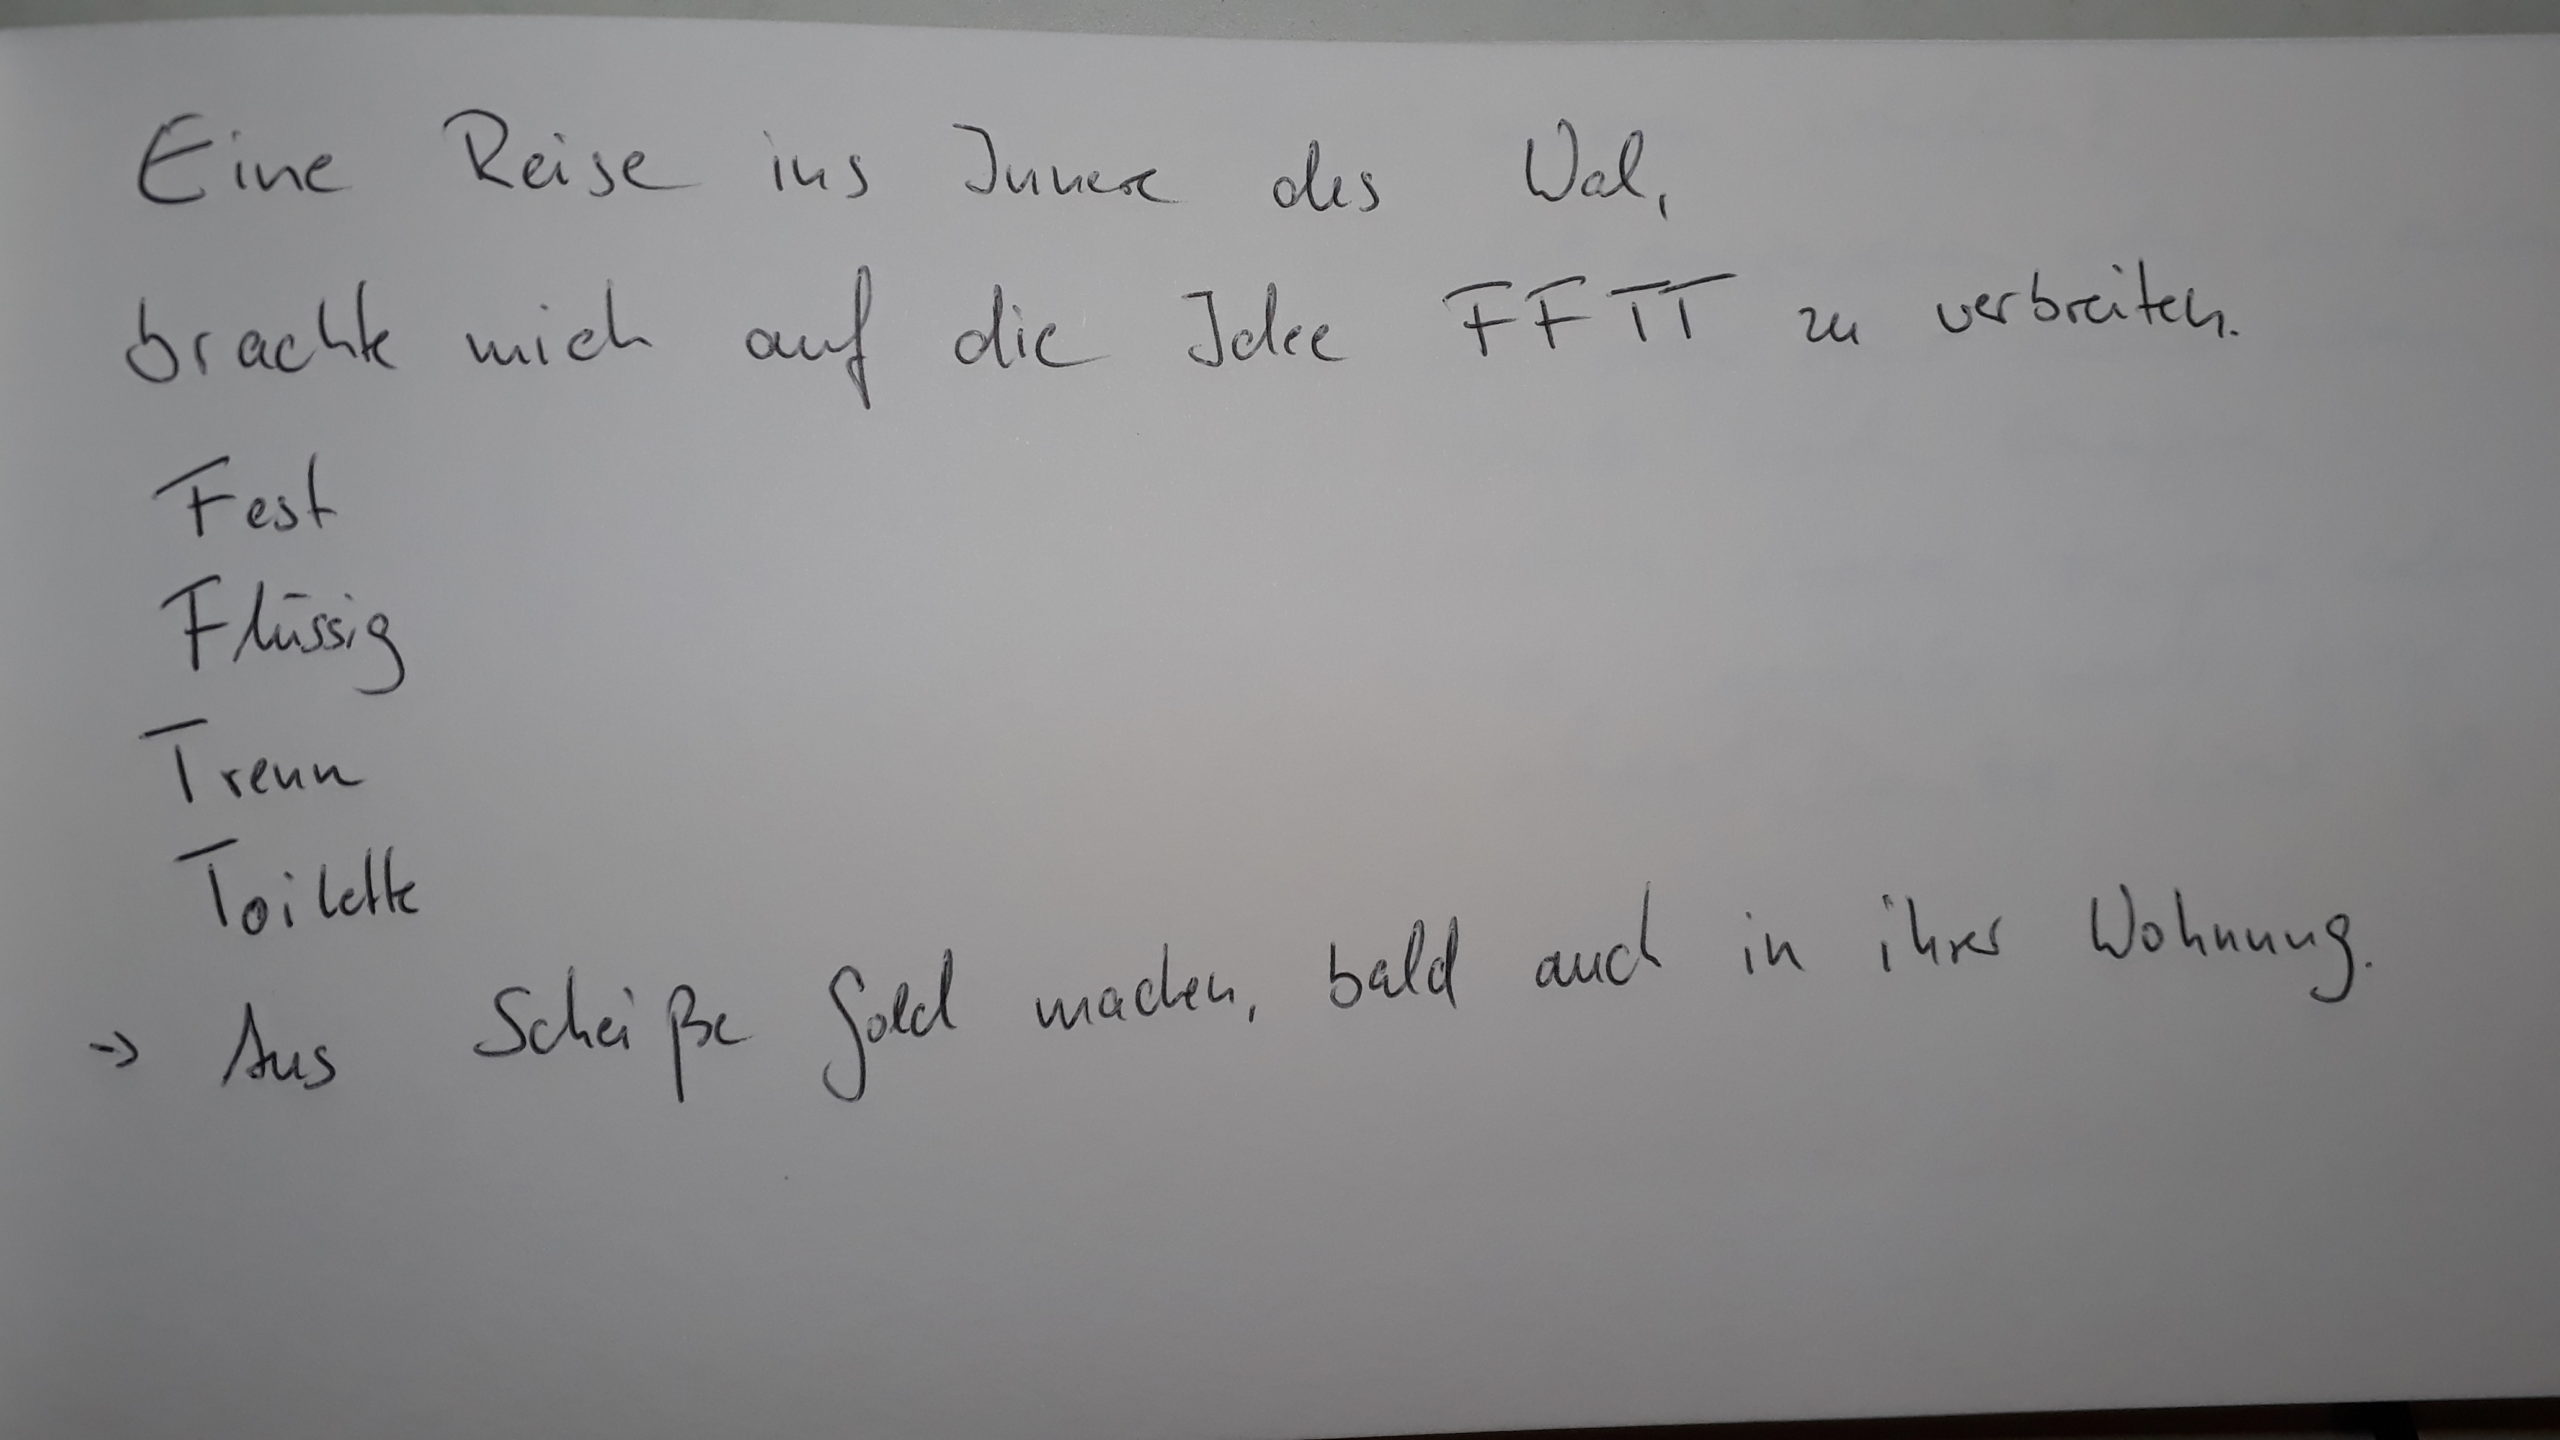 Eine Reise ins Innere des Wal,
brachte mich auf die Idee FFTT zu verbreiten.
Fest
Flüssig
Trenn
Toilette
→ Aus Scheiße Gold machen, bald auch in ihrer Wohnung.